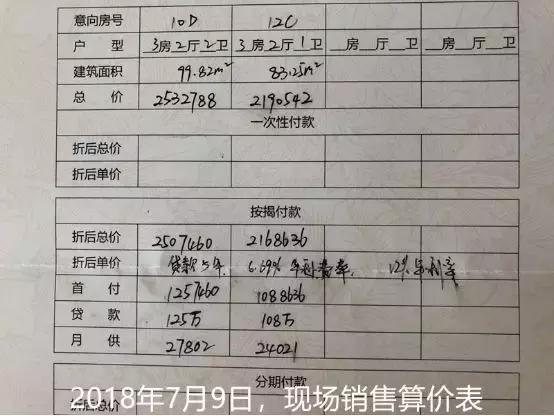 意向房号 10D 12C
户 型 3房2厅2卫 3房2厅1卫 __房__厅__卫 __房__厅__卫
建筑面积 99.82m² 83.25m²
总 价 2532788 2190542
一次性付款
折后总价
折后单价
按揭付款
折后总价 2507460 2168636
折后单价 贷款5年 6.69% 年利率, 12% 年利率
首 付 1257460 1088636
贷 款 125万 108万
月 供 27802 24021
分期付款
2018年7月9日，现场销售算价表